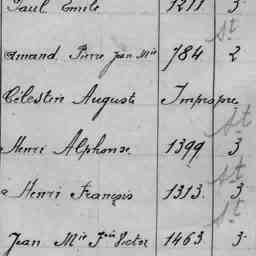 Paul Emile 1211 3
St
Amand Pierre Jean Mie 784 2
Célestin Auguste Impropre
St
Henri Alphonse 1399 3
St
Henri François 1313. 3
St
Jean Mie Fois Victor 1463 3